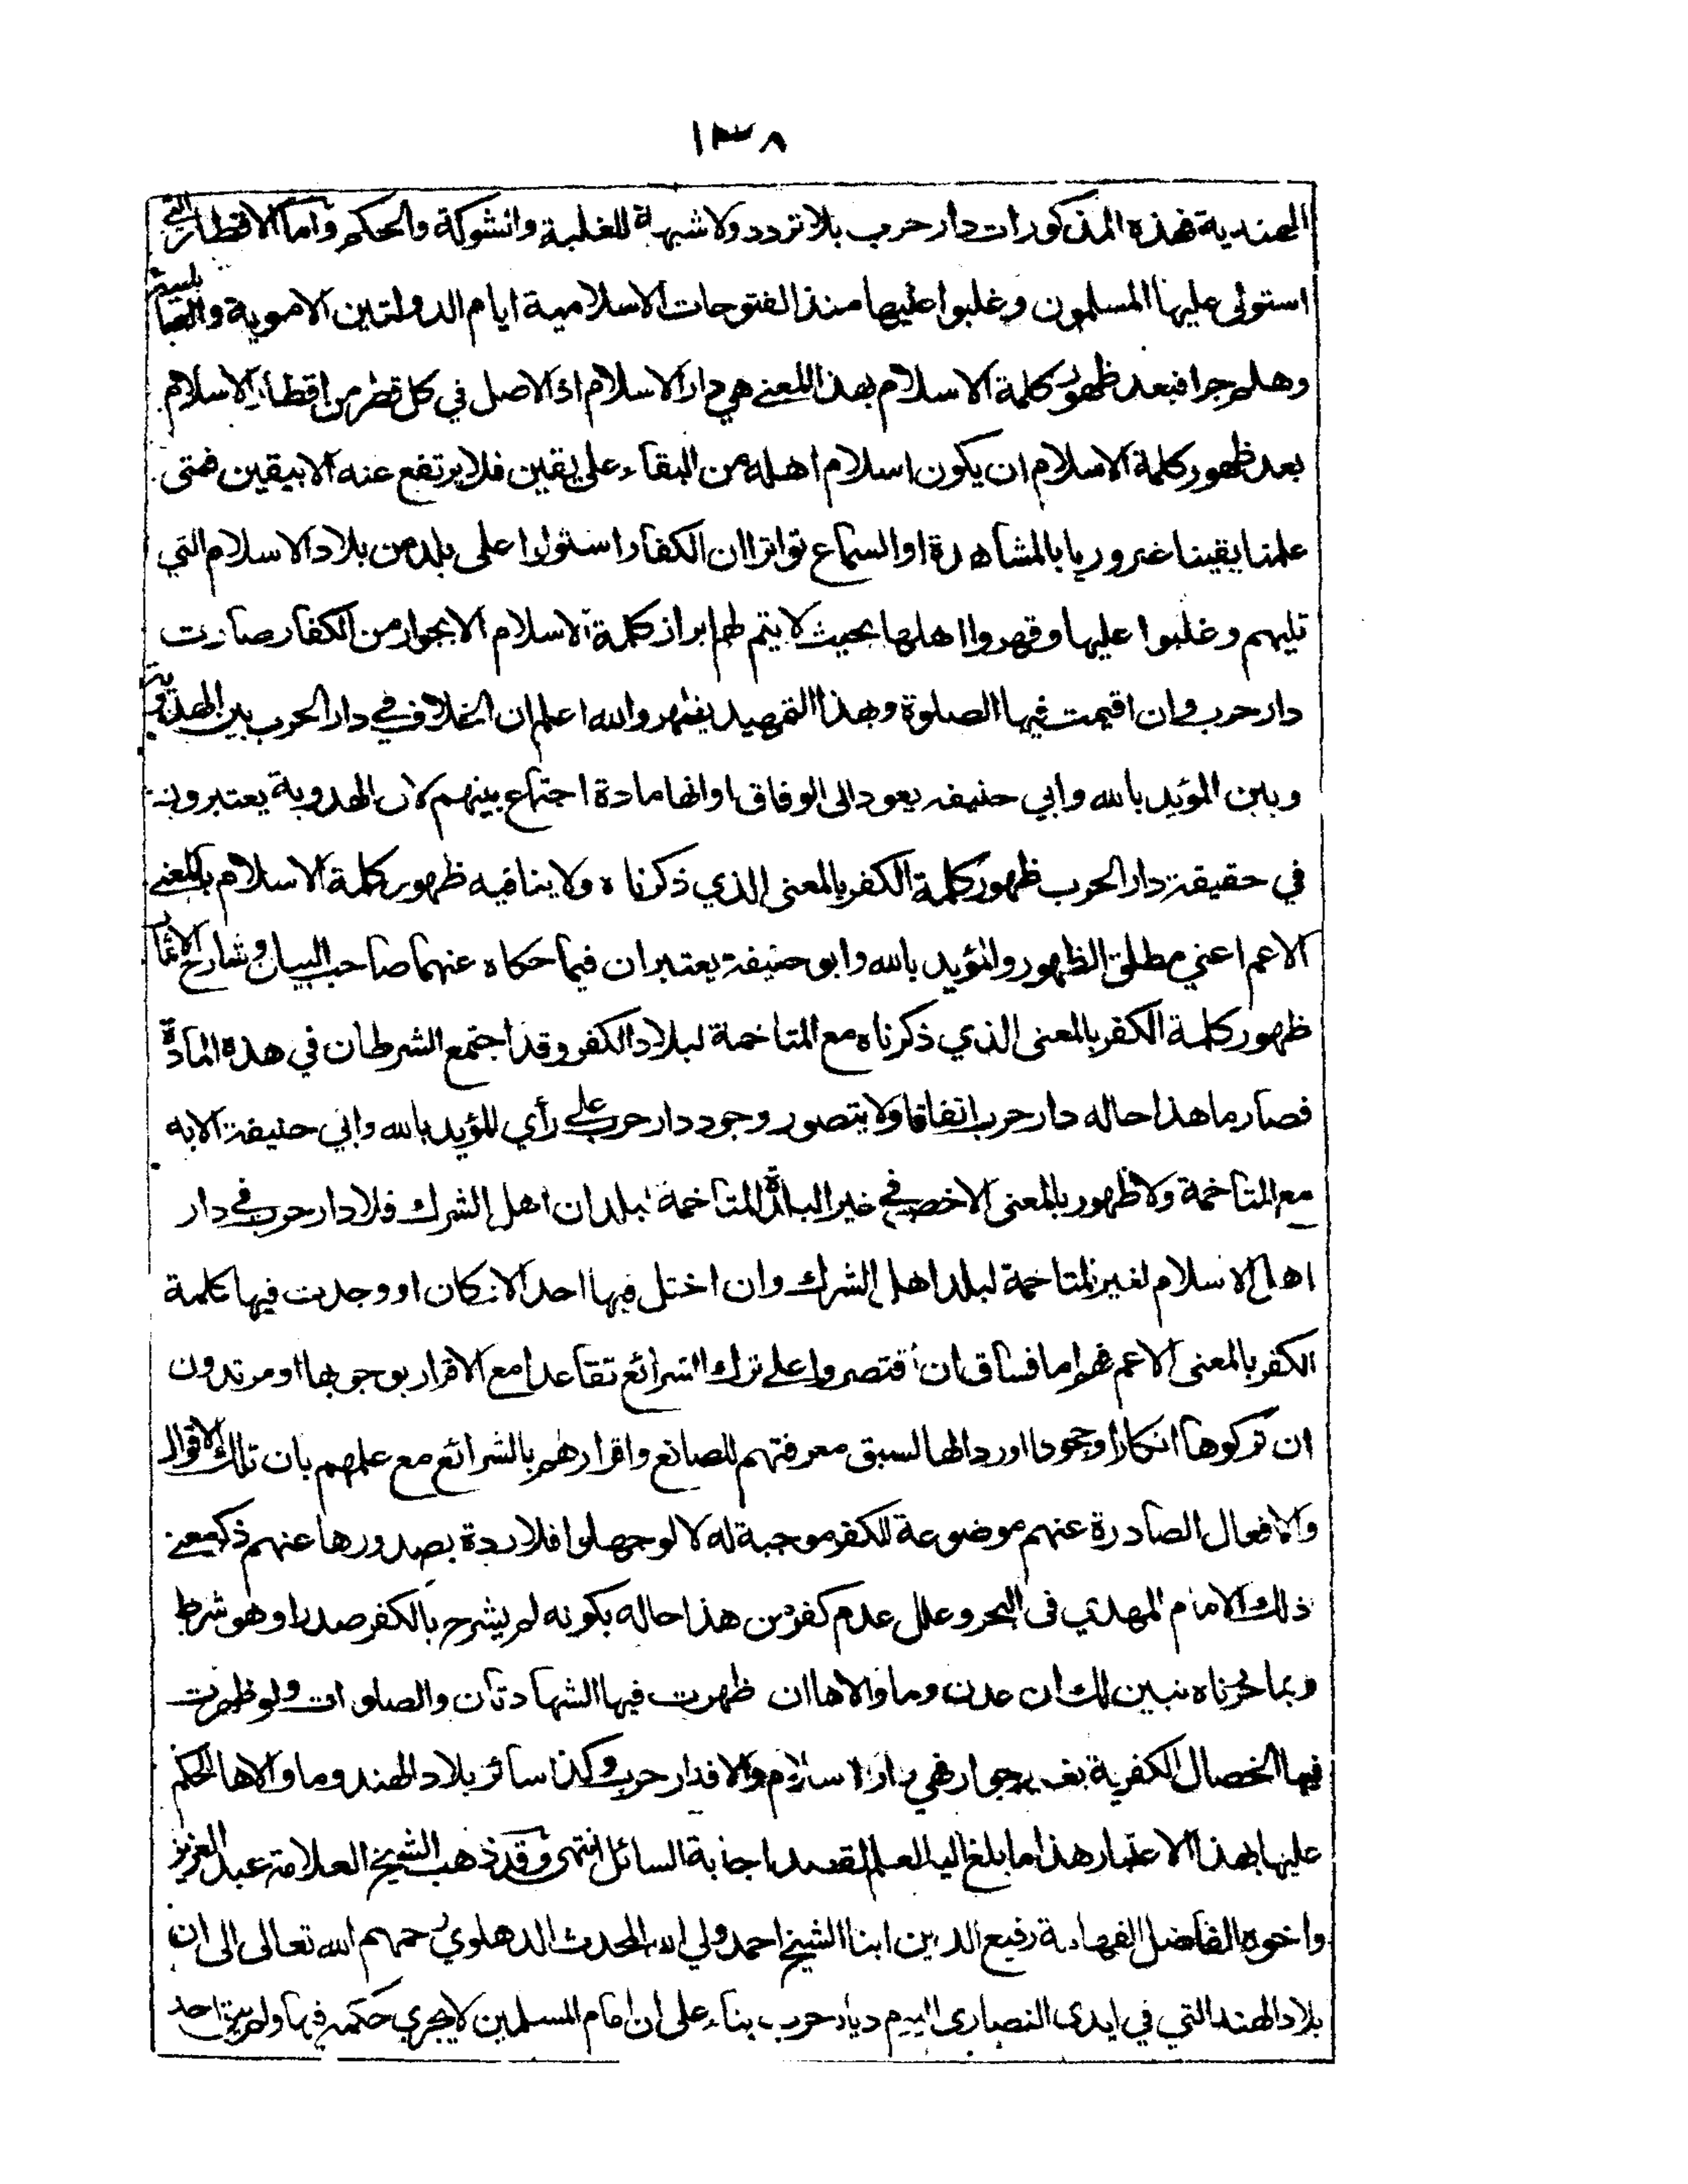 ١٣٨
الهندية فهذه المذكورات دار حرب بلا تردد ولا شبهة للغلبة والشوكة والحكم واما الاقطار التي
استولى عليها المسلمون وغلبوا عليها منذ الفتوحات الاسلامية ايام الدولتين الاموية والعباسية
وهلم جرا فبعد ظهور كلمة الاسلام بهذا المعنى هي دار الاسلام اذ الاصل في كل قطر من اقطار الاسلام
بعد ظهور كلمة الاسلام ان يكون اسلام اهله من البقاء على يقين فلا يرتفع عنه الا بيقين فمتى
علمنا يقينا ضروريا بالمشاهدة او السماع تواترا ان الكفار استولوا على بلد من بلاد الاسلام التي
تليهم وغلبوا عليها وقهروا اهلها بحيث لا يتم لهم ابراز كلمة الاسلام الا بجوار من الكفار صارت
دار حرب وان اقيمت فيها الصلوة وبهذا التمهيد يظهر والله اعلم ان الخلاف في دار الحرب بين الهدوية
وبين المؤيد بالله وابي حنيفه يعود الى الوفاق او انها مادة اجتماع بينهم لان الهدوية يعتبرون
في حقيقة دار الحرب ظهور كلمة الكفر بالمعنى الذي ذكرناه ولا ينافيه ظهور كلمة الاسلام بالمعنى
الاعم اعني مطلق الظهور والمؤيد بالله وابو حنيفة يعتبران فيما حكاه عنهما صاحب البيان وشارح الاثمار
ظهور كلمة الكفر بالمعنى الذي ذكرناه مع المتاخمة لبلاد الكفر وقد اجتمع الشرطان في هذه المادة
فصار ما هذا حاله دار حرب اتفاقا ولا يتصور وجود دار حرب على رأي المؤيد بالله وابي حنيفة الا به
مع المتاخمة ولا ظهور بالمعنى الاخص في غير البلدة المتاخمة لبلدان اهل الشرك فلا دار حرب في دار
اهل الاسلام لغير المتاخمة لبلد اهل الشرك وان اختل فيها احد الاركان او وجدت فيها كلمة
الكفر بالمعنى الاعم فهم اما فساق ان اقتصروا على ترك الشرائع تقاعدا مع الاقرار بوجوبها او مرتدون
ان تركوها انكارا وجحودا او ردا لها لسبق معرفتهم للصانع واقرارهم بالشرائع مع علمهم بان تلك الاقوال
والافعال الصادرة عنهم موضوعة للكفر موجبة له لا لو جهلوا فلا ردة بصدورها عنهم ذكر معنى
ذلك الامام المهدي في البحر وعلل عدم كفر من هذا حاله بكونه لم يشرح بالكفر صدرا وهو شرط
وبما حررناه تبين لك ان عدن وما والاها ان ظهرت فيها الشهادتان والصلوات ولو ظهرت
فيها الخصال الكفرية بغير جوار فهي دار اسلام والا فدار حرب وكذا سائر بلاد الهند وما والاها الحكم
عليها بهذا الاعتبار هذا ما بلغ اليه العلم لقصد اجابة السائل انتهى وقد ذهب الشيخ العلامة عبد العزيز
واخوه الفاضل الفهامة رفيع الدين ابنا الشيخ احمد ولي الله المحدث الدهلوي رحمهم الله تعالى الى ان
بلاد الهند التي في ايدي النصارى اليوم ديار حرب بناء على ان امام المسلمين لا يجري حكمه فيها احد